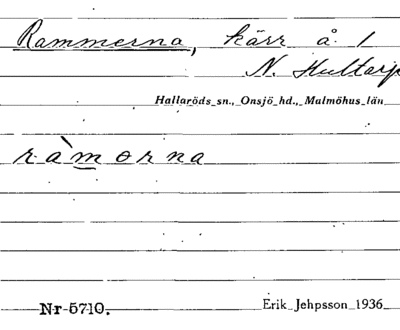 Rammerna, kärr å 1
N. Hultarp
Hallaröds sn., Onsjö hd., Malmöhus län
ràmorna
Nr 5710.
Erik Jehpsson 1936